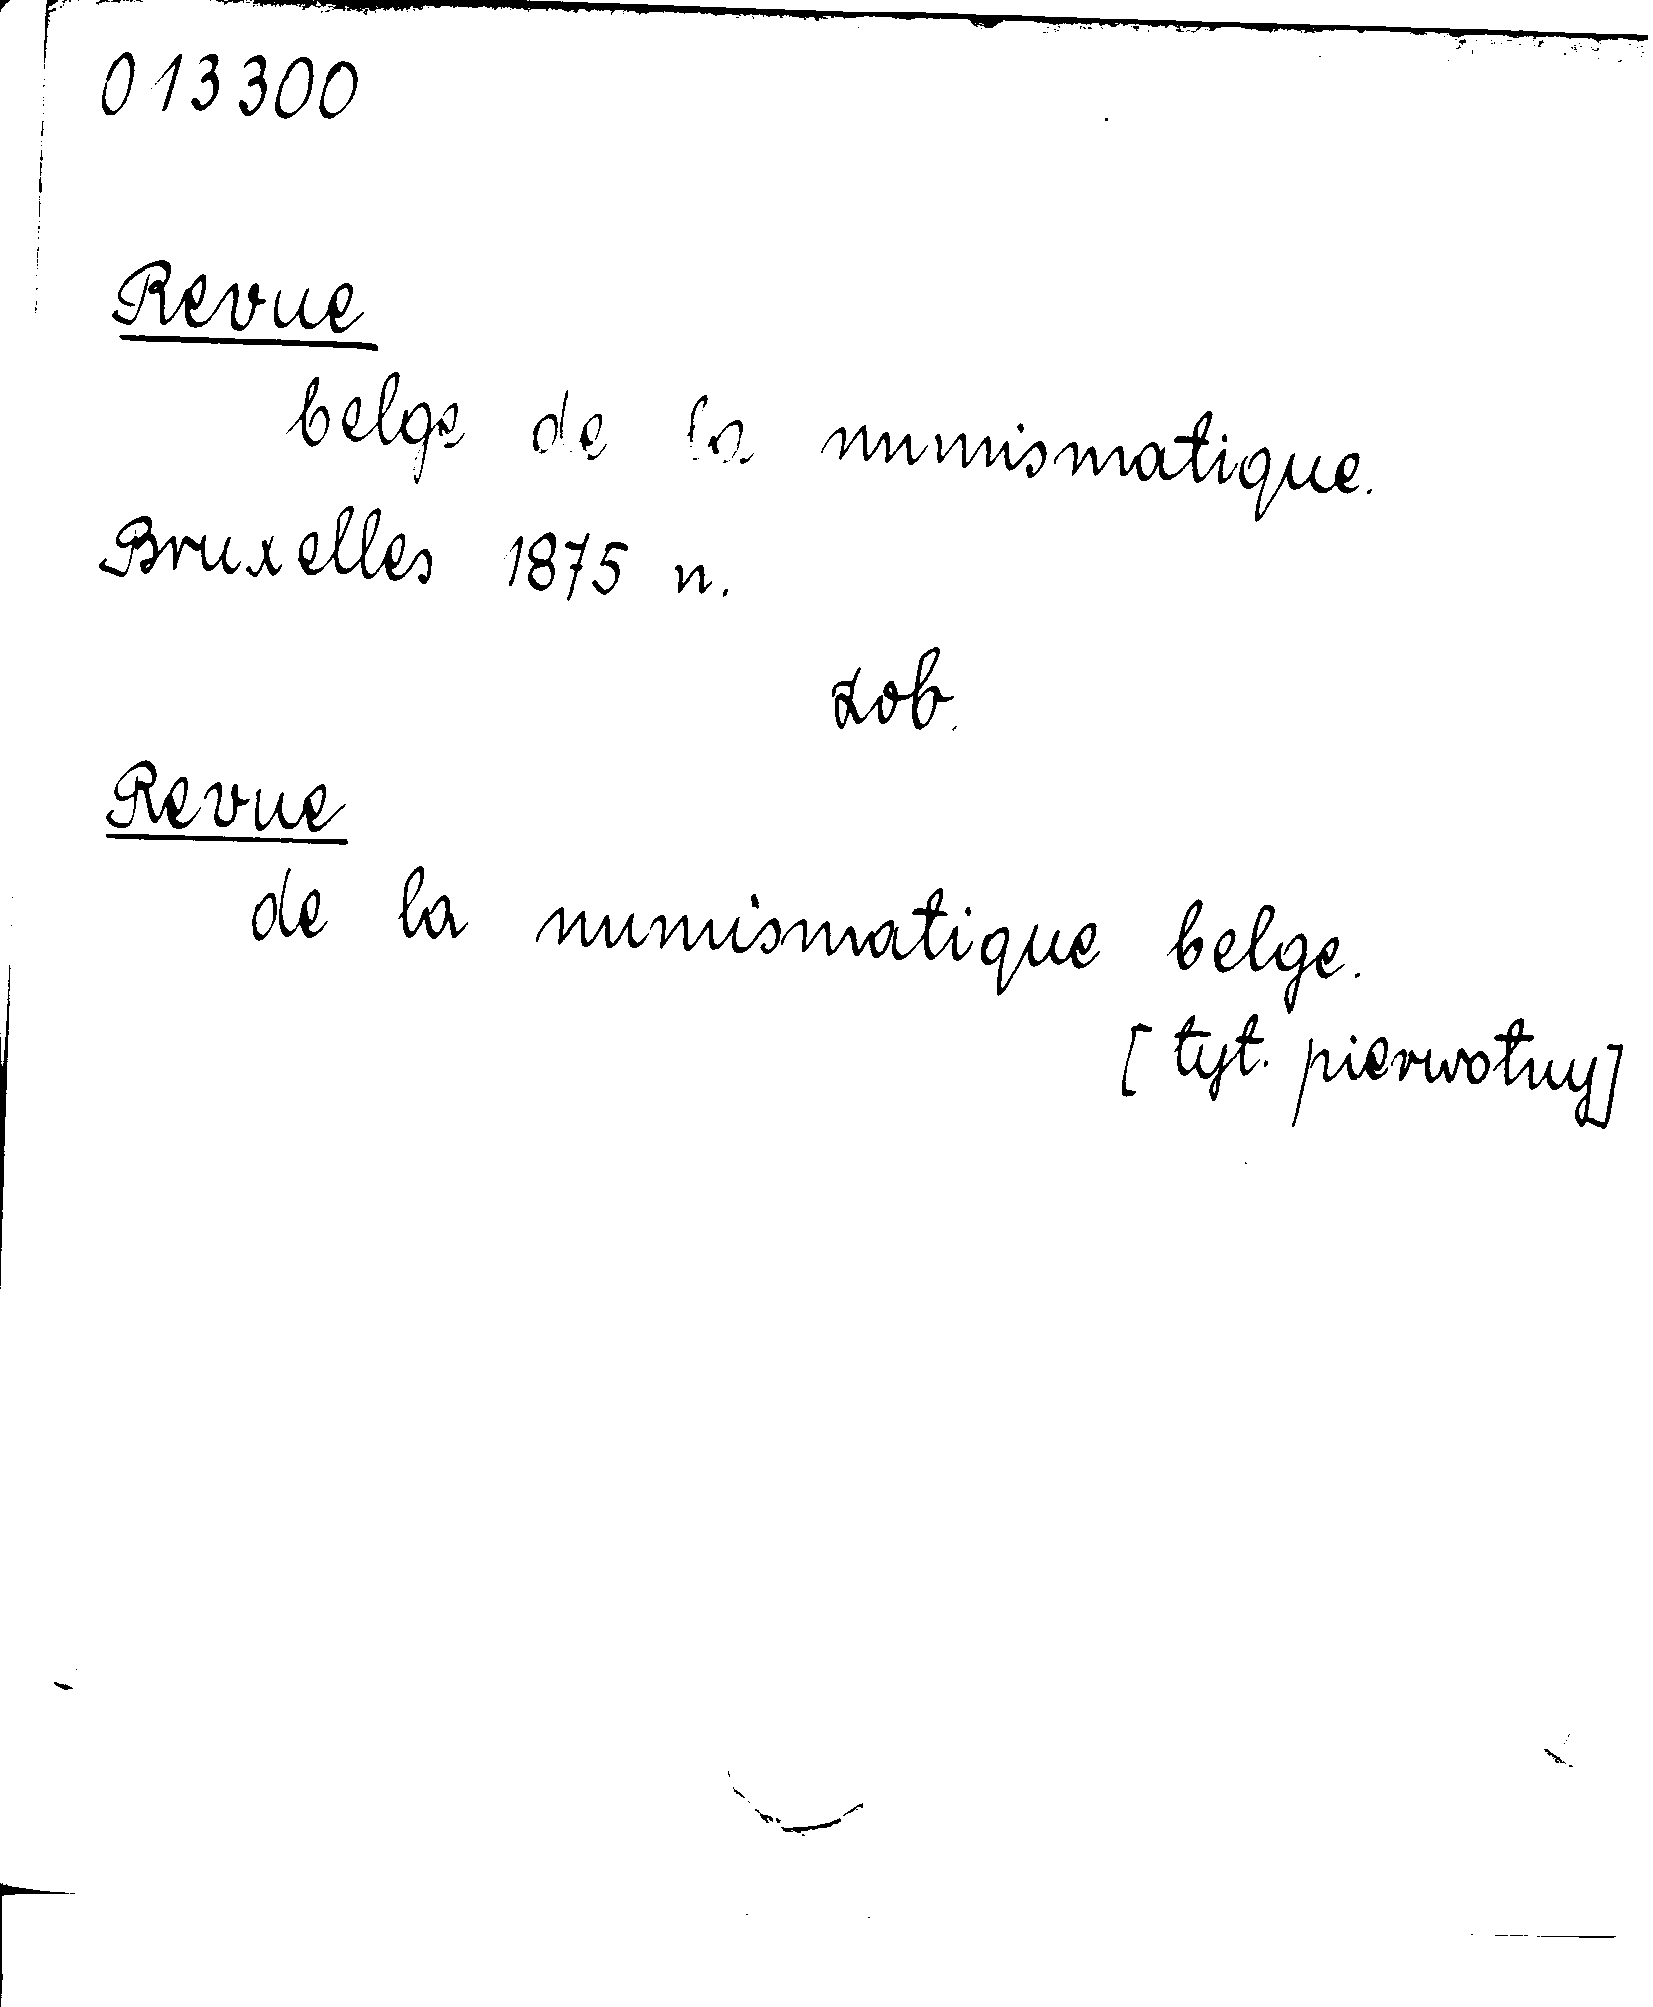 013300
Revue
belge de la numismatique.
Bruxelles 1875 n.
zob.
Revue
de la numismatique belge.
[tyt. pierwotny]